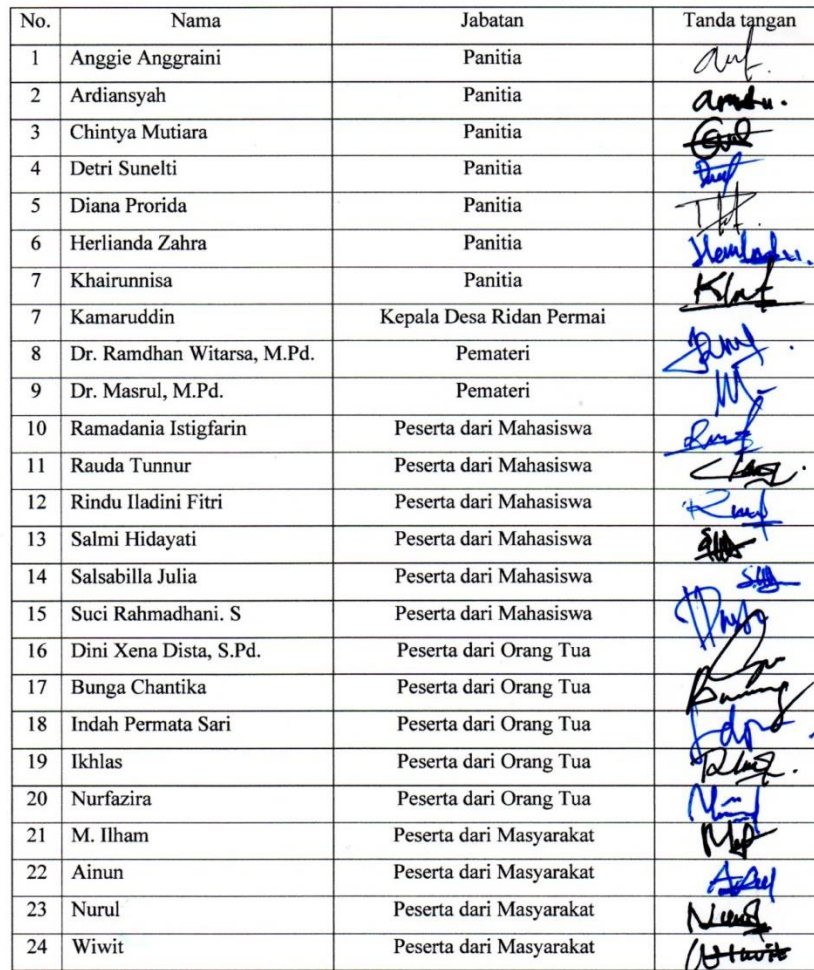 No. Nama Jabatan Tanda tangan
1 Anggie Anggraini Panitia
2 Ardiansyah Panitia
3 Chintya Mutiara Panitia
4 Detri Sunelti Panitia
5 Diana Prorida Panitia
6 Herlianda Zahra Panitia
7 Khairunnisa Panitia
7 Kamaruddin Kepala Desa Ridan Permai
8 Dr. Ramdhan Witarsa, M.Pd. Pemateri
9 Dr. Masrul, M.Pd. Pemateri
10 Ramadania Istigfarin Peserta dari Mahasiswa
11 Rauda Tunnur Peserta dari Mahasiswa
12 Rindu Iladini Fitri Peserta dari Mahasiswa
13 Salmi Hidayati Peserta dari Mahasiswa
14 Salsabilla Julia Peserta dari Mahasiswa
15 Suci Rahmadhani. S Peserta dari Mahasiswa
16 Dini Xena Dista, S.Pd. Peserta dari Orang Tua
17 Bunga Chantika Peserta dari Orang Tua
18 Indah Permata Sari Peserta dari Orang Tua
19 Ikhlas Peserta dari Orang Tua
20 Nurfazira Peserta dari Orang Tua
21 M. Ilham Peserta dari Masyarakat
22 Ainun Peserta dari Masyarakat
23 Nurul Peserta dari Masyarakat
24 Wiwit Peserta dari Masyarakat